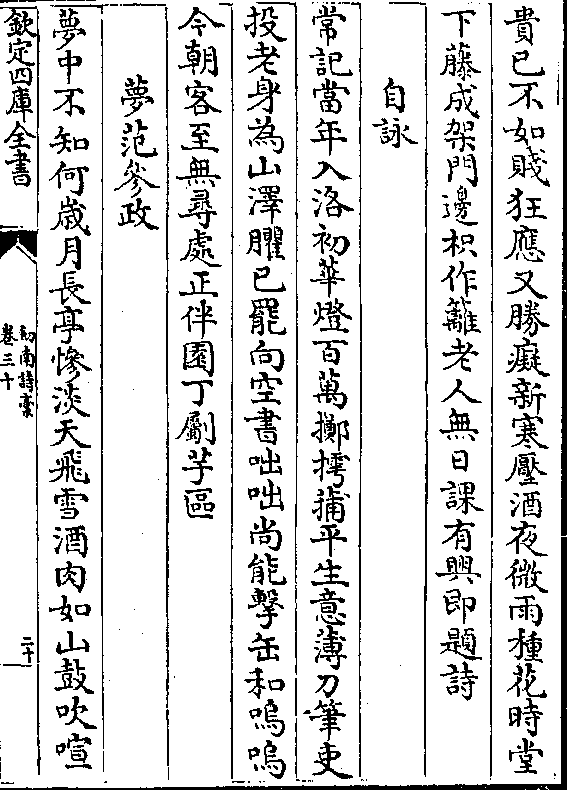 貴已不如賤狂應又勝癡新寒壓酒夜微雨種花時堂
下藤成架門邊枳作籬老人無日課有興即題詩
自詠
常記當年入洛初華燈百萬擲摴蒱平生意薄刀筆吏
投老身為山澤臞已罷向空書咄咄尚能擊缶和嗚嗚
今朝客至無尋處正伴園丁劚芋區
夢范參政
夢中不知何歳月長亭慘淡天飛雪酒肉如山鼓吹喧
欽定四庫全書
劒南詩藁
卷三十
二十